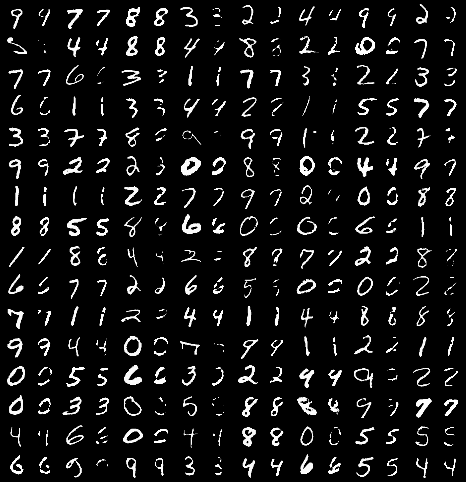 9 9 7 7 8 8 3 3 2 2 4 4 9 9 2 2
5 4 4 8 8 4 4 8 8 2 2 0 0 7 7
7 7 6 6 3 3 1 1 7 7 3 3 2 2 3 3
6 6 1 1 3 3 4 4 2 2 1 1 5 5 7 7
3 3 7 7 8 9 9 9 1 1 2 2 7 7
9 9 2 2 2 3 0 0 8 8 0 0 4 4 9 9
1 1 1 1 2 2 7 7 9 9 2 0 0 8 8
8 8 5 5 8 8 6 6 0 0 0 0 6 6 1 1
1 1 8 8 4 4 2 8 8 7 7 2 2 8 8
6 6 7 7 2 2 6 6 5 5 0 0 0 0 2 2
7 7 1 1 2 4 4 1 1 4 4 8 8 8 8
9 9 4 4 0 0 7 9 9 1 1 2 2 1 1
0 0 5 5 6 6 3 3 2 2 9 9 9 2 2
0 0 3 3 0 0 5 8 8 8 8 9 9 7 7
4 4 6 6 0 0 4 4 8 8 0 0 5 5 5 5
6 6 9 9 9 3 3 4 4 6 6 5 5 4 4